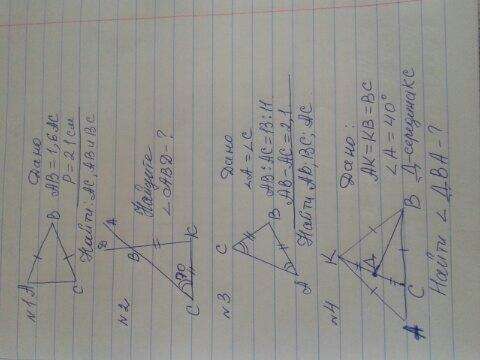 №1
A
B
C
Дано
AB = 1,6 AC
P = 21 см
Найти: AC, AB и BC
№2
A
B
C
K
70
Найдите
∠ABD - ?
№3
C
B
A
Дано
∠A = ∠C
AB : AC = 13 : 11
AB - AC = 2,1
Найти AB; BC; AC
№4
K
A
C
B
Дано:
AK = KB = BC
∠A = 40°
Д - середина KC
Найти ∠ДВА - ?